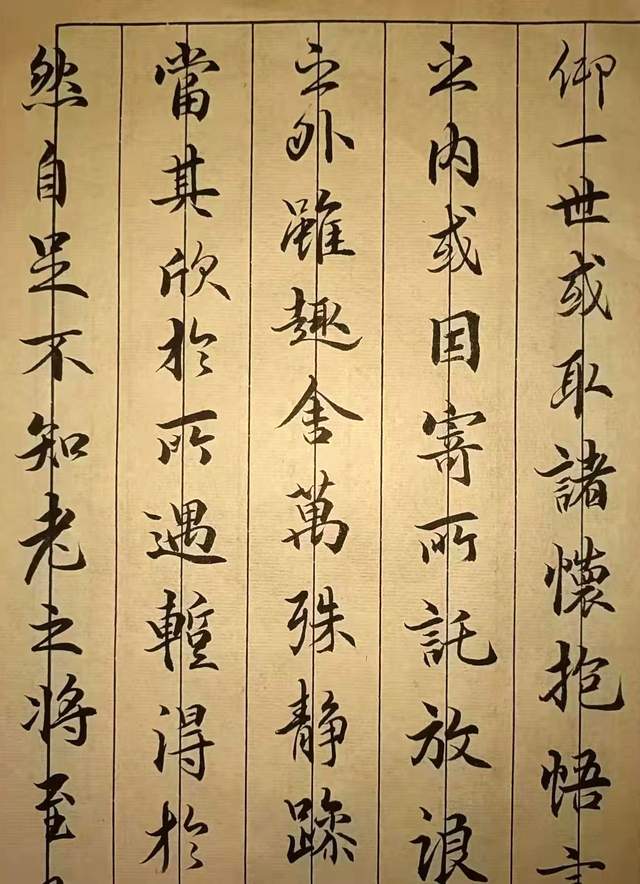 仰一世或取諸懷抱悟言
之內或因寄所託放浪
之外雖趣舍萬殊静躁
當其欣於所遇暫得於
然自足不知老之將至